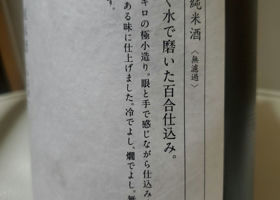 純米酒
〈無濾過〉
く水で磨いた百合仕込み。
キロの極小造り。眼と手で感じながら仕込み
ある味に仕上げました。冷でよし、燗でよし。無
す。